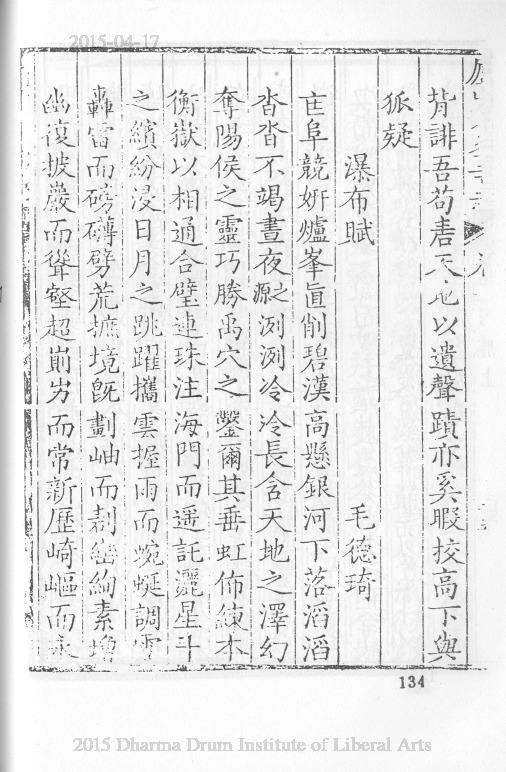 2015-04-17
背誹吾苟書天地以遺聲蹟亦奚暇校高下與
狐疑
瀑布賦 毛德琦
匡阜競妍爐峯直削碧漢高懸銀河下落滔滔
沓沓不竭晝夜之源冽冽冷冷長含天地之澤幻
奪陽侯之靈巧勝禹穴之鑿爾其垂虹佈練本
衡嶽以相通合璧連珠注海門而遥託灑星斗
之繽紛浸日月之跳躍攜雲握雨而蜿蜒調
轟雷而磅礴劈荒摭境旣劃岫而剨巒絢素增
幽復披巖而聳壑超剬岃而常新歷崎嶇而永
134
2015 Dharma Drum Institute of Liberal Arts